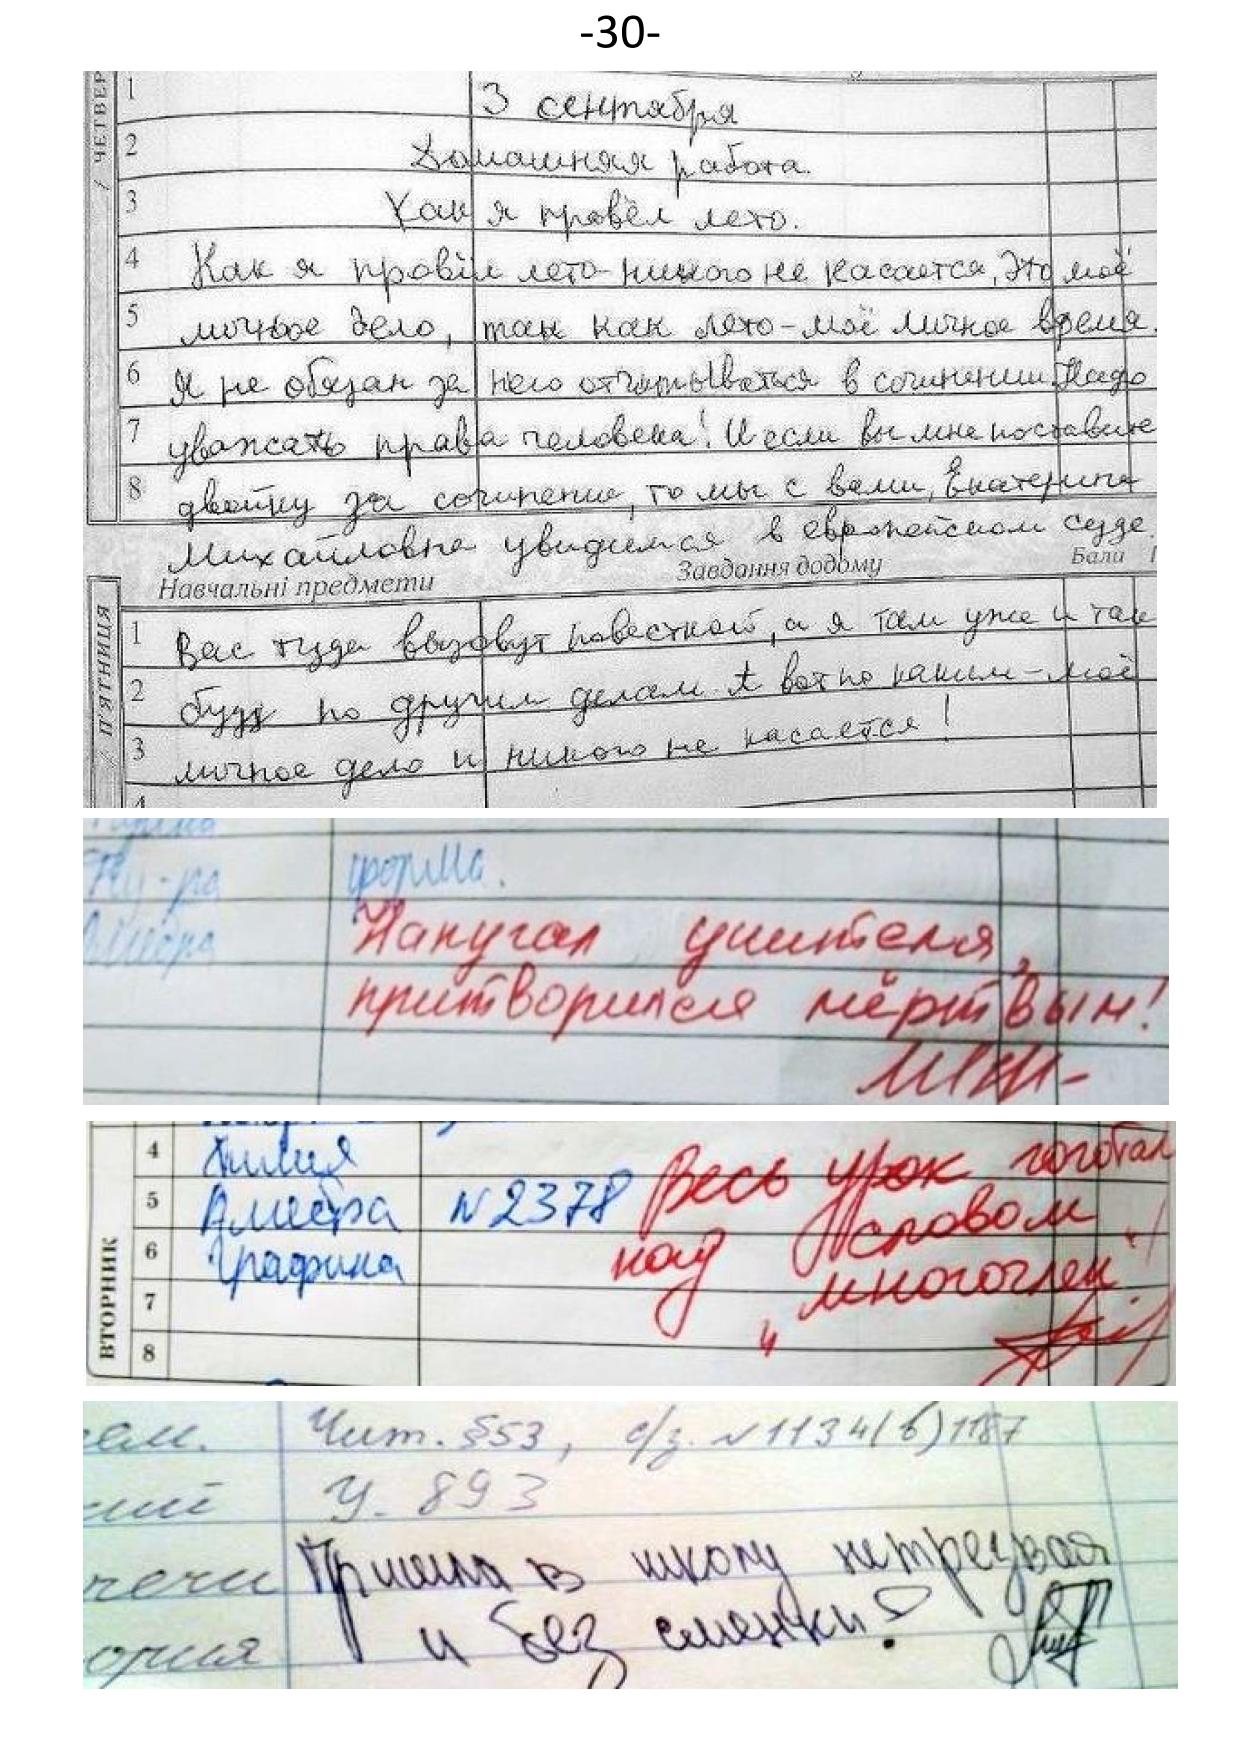 -30-
ЧЕТВЕР
1 3 сентября
2 Домашняя работа.
3 Как я провёл лето.
4 Как я провёл лето никого не касается. Это моё
5 личное дело, так как лето - моё личное время.
6 Я не обязан за него отчитываться в сочинении. Надо
7 уважать права человека! И если вы мне поставите
8 двойку за сочинение, то мы с вами, Екатерина
Михайловна увидимся в европейском суде.
Навчальні предмети Завдання додому Бали
П'ЯТНИЦЯ
1 Вас туда вызовут повесткой, а я там уже и так
2 буду по другим делам. А вот по каким - моё
3 личное дело и никого не касается!
4
форма.
Напугал учителя,
притворился мёртвым!
ВТОРНИК
4 Химия
5 Алгебра N2378
6 Графика
7
8
Весь урок гоготал
над словом
"многочлен"!
Чит. §53, с/з. N1134(б)1187
У. 893
Пришла в школу нетрезвая
и без сменки!